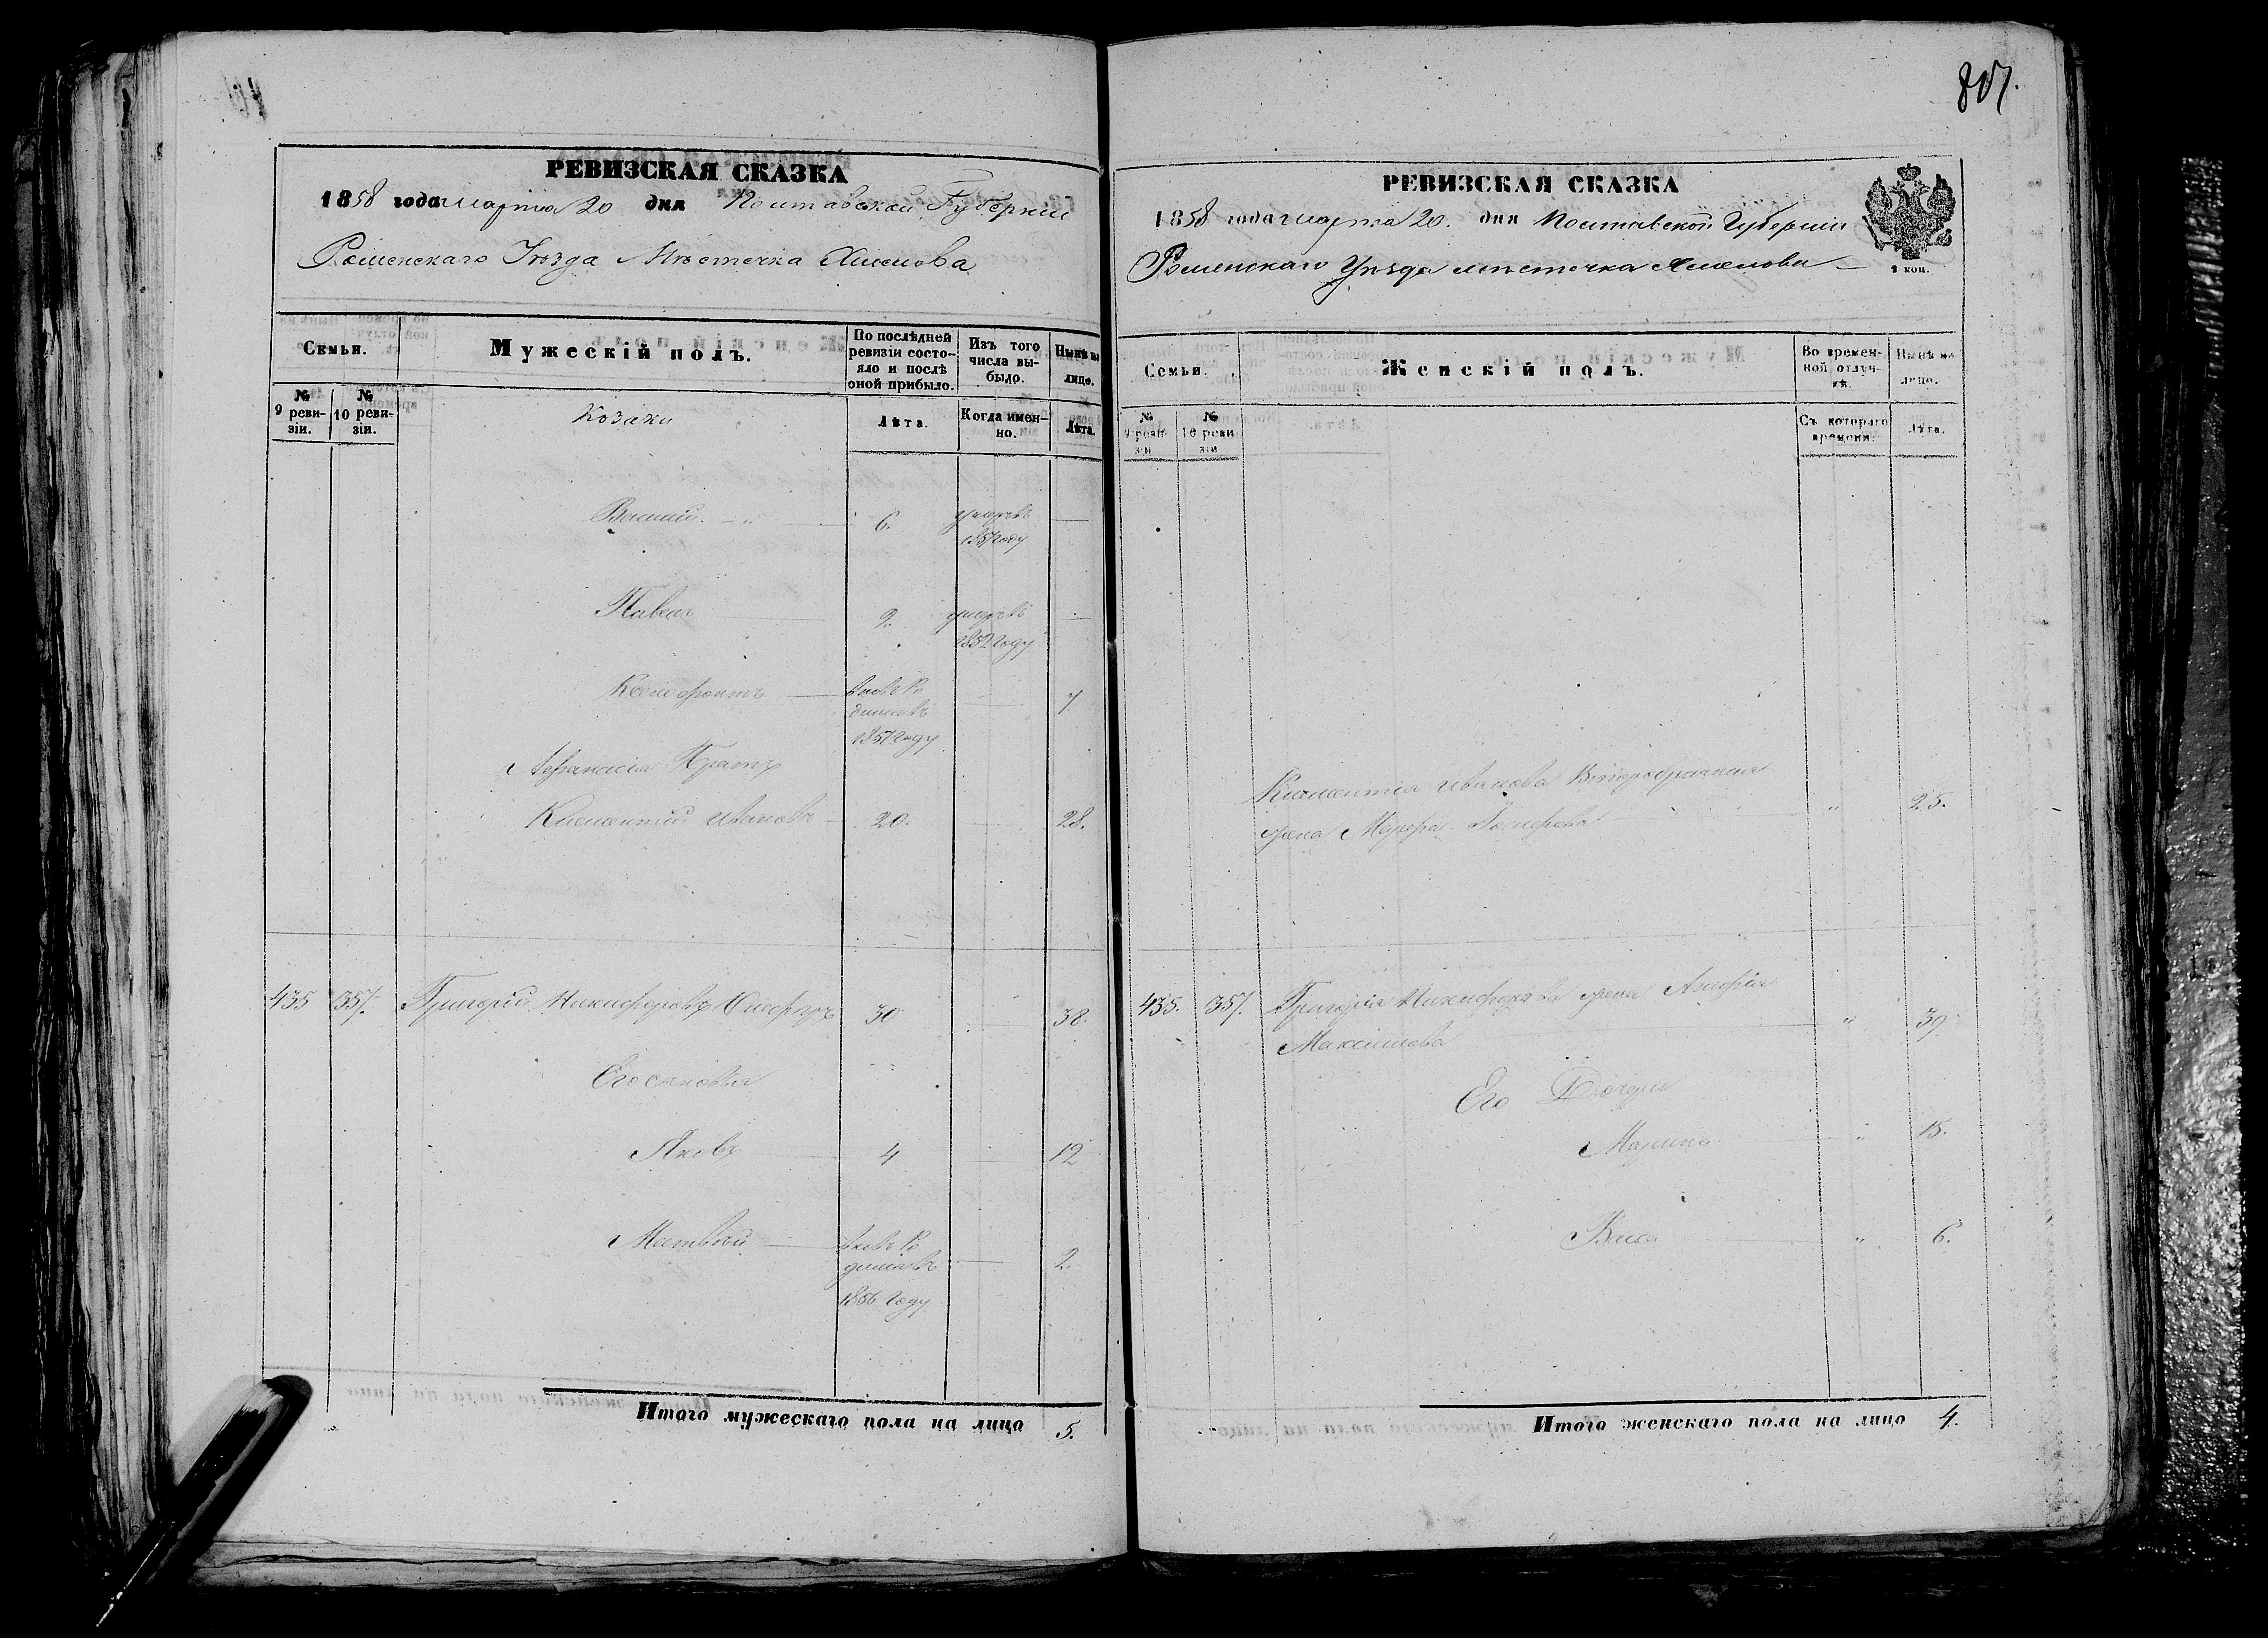 807.
РЕВИЗСКАЯ СКАЗКА
1858 года марта 20 дня Полтавской Губернии
Роменскаго Уѣзда Мѣстечка Хмелова
Семьи.
Мужескій полъ.
По послѣдней ревизіи состояло и послѣ оной прибыло.
Изъ того числа выбыло.
Нынѣ на лицо.
№ 9 ревизіи.
№ 10 ревизіи.
Козаки
Лѣта.
Когда именно.
Лѣта.
Василій 6. умеръ въ
году
Павелъ 2. умеръ въ
1852 году
Ксенофонтъ вновь ро 7
дился въ
1851 году
Афанасія Братъ
Климентій Ивановъ 20. 28.
435 357. Григорій Никифоровъ 30 38.
Его сыновья
Яковъ 4 12
Матвѣй вновь ро 2.
дился въ
1856 году
Итого мужескаго пола на лицо 5.
РЕВИЗСКАЯ СКАЗКА
1858 года марта 20. дня Полтавской Губернии
Роменскаго Уѣзда мѣстечка Хмелова
1 коп.
Семьи.
Женскій полъ.
Во временной отлучкѣ.
Нынѣ на лицо.
№ 9 ревизіи
№ 10 ревизіи
Съ котораго времени.
Лѣта.
Климентія Иванова Второбрачная
жена Марфа " 25.
435. 357. Григорія Никифорова жена Агафія
Максимова " 39.
Его Дочери
Марина " 15.
Васса " 6.
Итого женскаго пола на лицо 4.